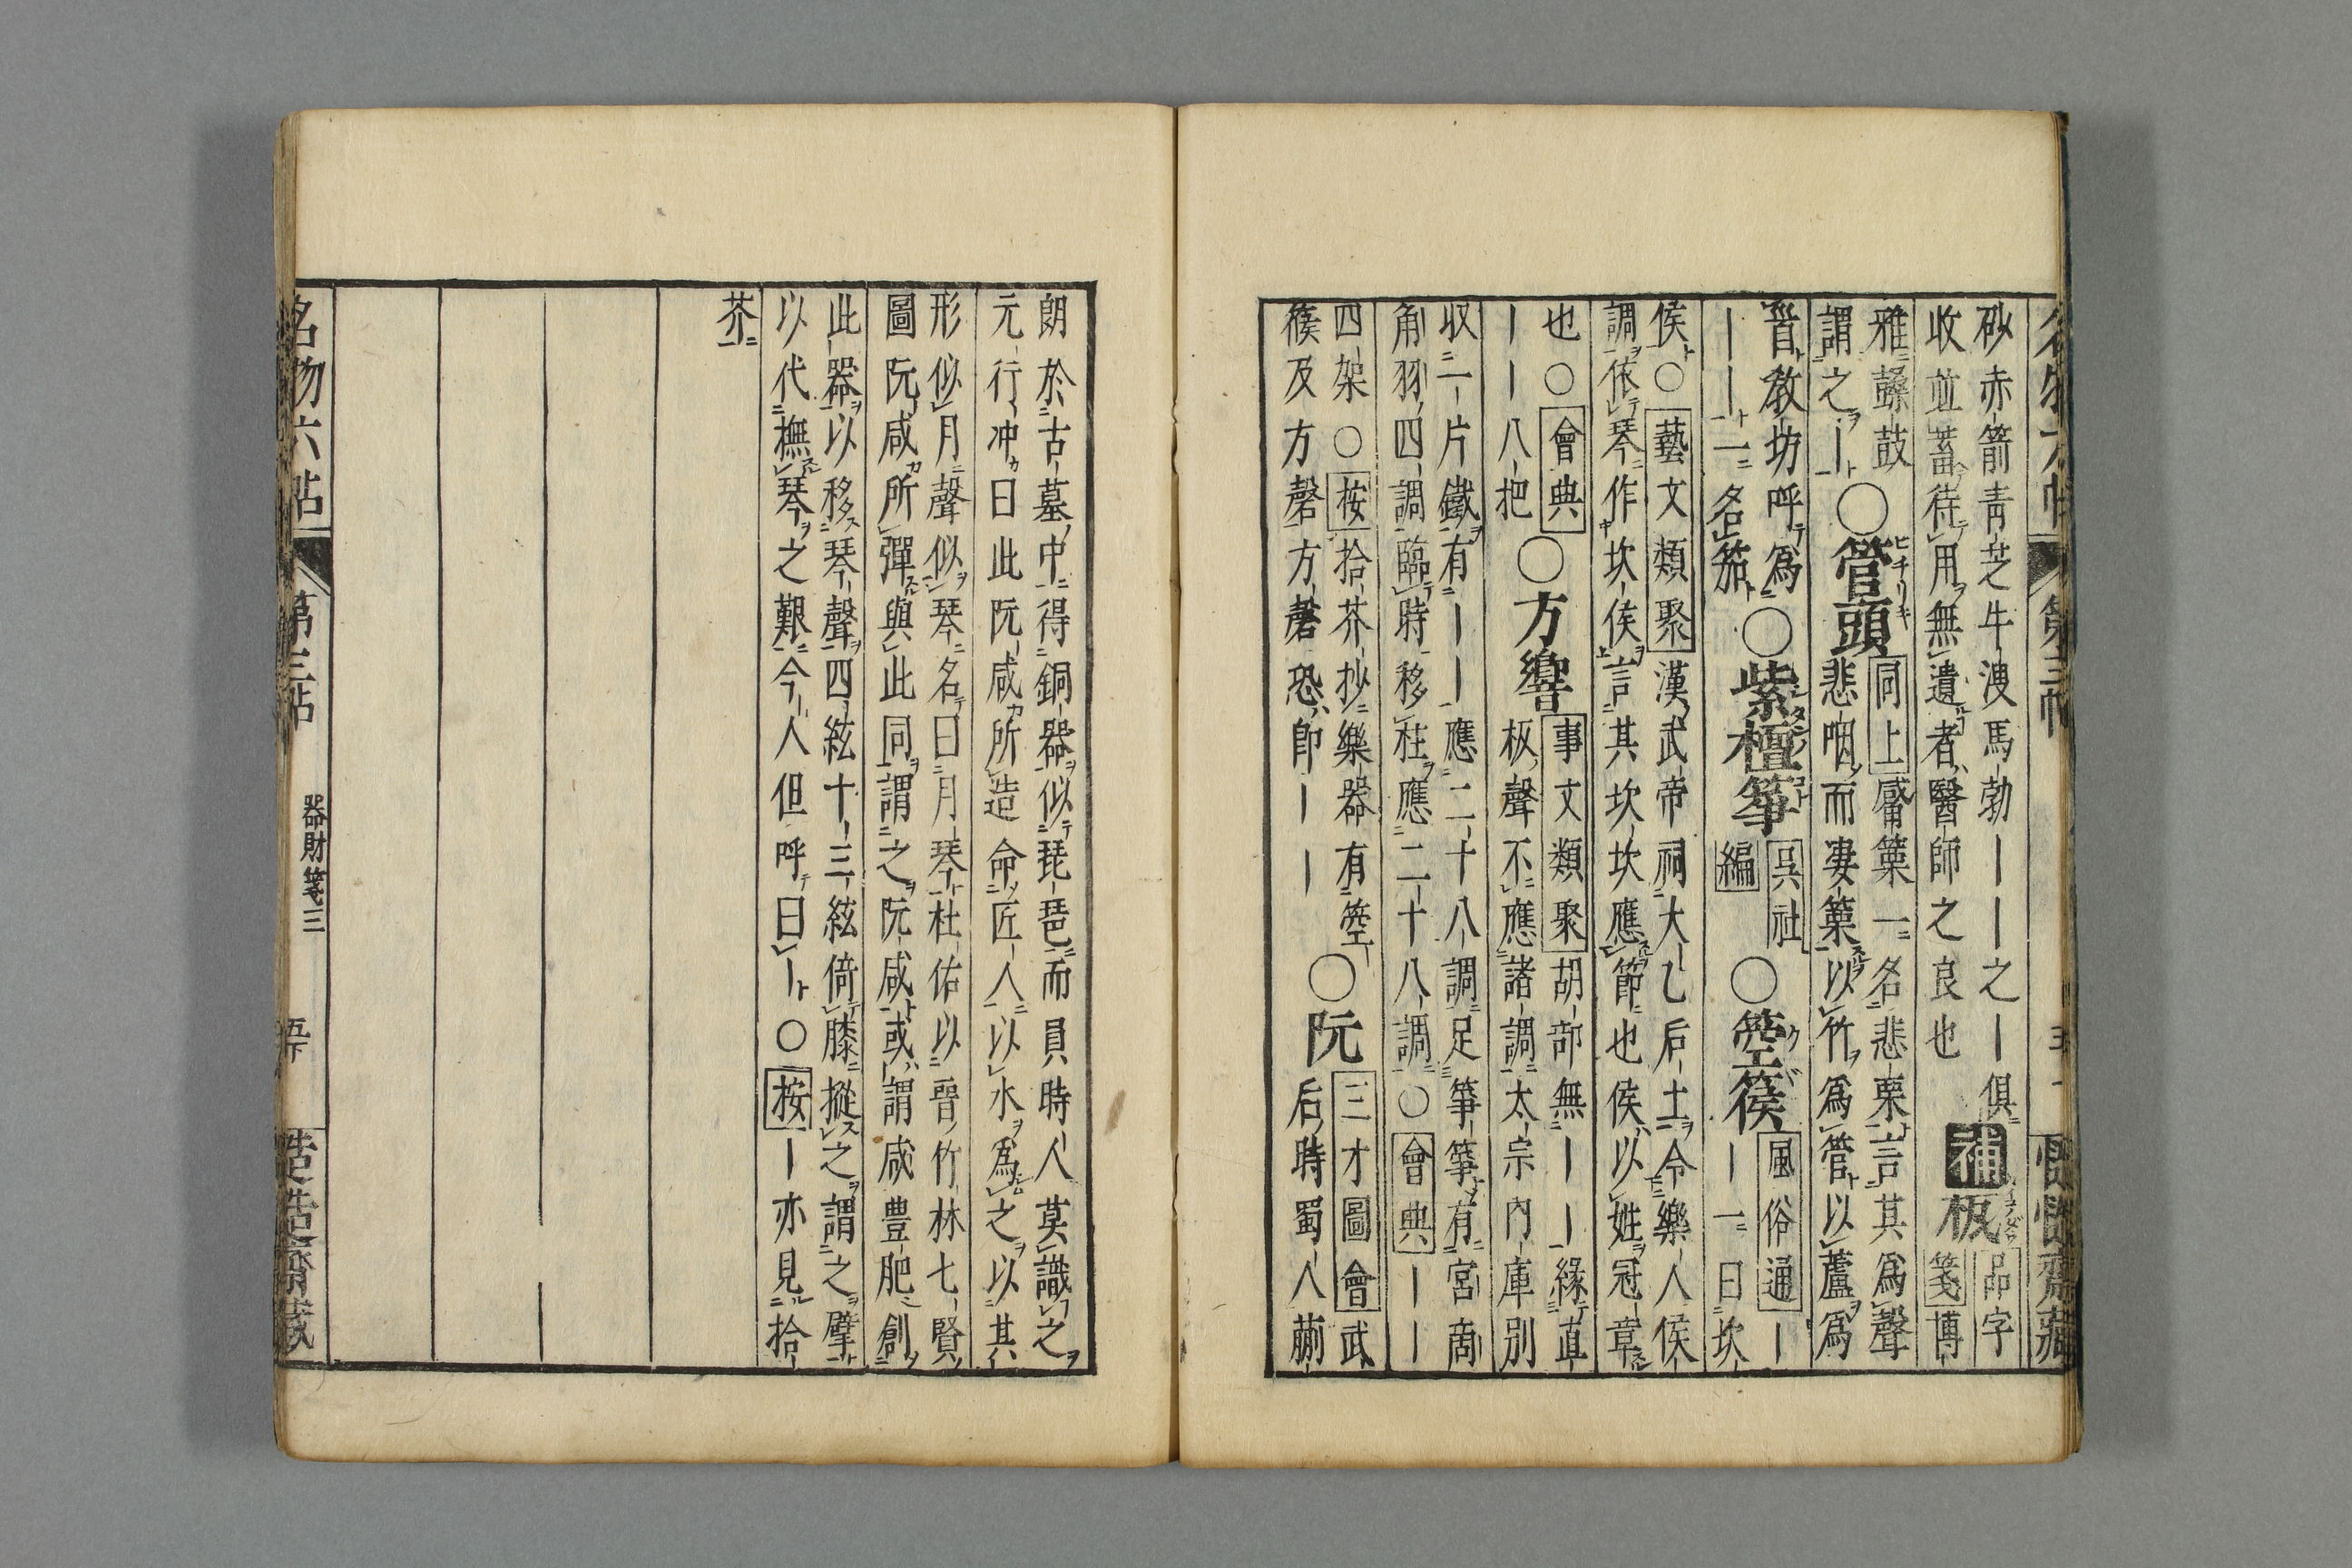 砂赤箭青芝牛溲馬勃丨丨之丨俱
收並蓄待用無遺者醫師之良也
補板
品字
箋博
雅鼛鼓
謂之丨
○管頭
同上觱篥一名悲栗言其爲聲
悲咽而凄篥以竹爲管以蘆爲
首教坊呼爲
丨丨一名笳
○紫檀箏
呉社
編
○箜篌
風俗通丨
丨一曰坎
侯○藝文類聚漢武帝祠大乙后土令樂人侯
調依琴作坎侯言其坎坎應節也侯以姓冠章
也○會典
丨丨八把
○方響
事文類聚胡部無丨丨緣直
板聲不應諸調太宗内庫別
収二片鐵有丨丨丨應二十八調足箏箏有宮商
角羽四調臨時移柱應二十八調○會典丨丨
四架○按拾芥抄樂器有箜
篌及方磬方磬恐即丨丨
○阮
三才圖會武
后時蜀人蒯
朗於古墓中得銅器似琵琶而員時人莫識之
元行冲曰此阮咸所造命匠人以水爲之以其
形似月聲似琴名曰月琴杜佑以晉竹林七賢
圖阮咸所彈與此同謂之阮咸或謂咸豊肥創
此器以移琴聲四絃十三絃倚膝摐之謂之擘
以代撫琴之艱今人但呼曰丨○按丨亦見拾
芥
名物六帖 第三帖 器財箋三 慥慥齋藏